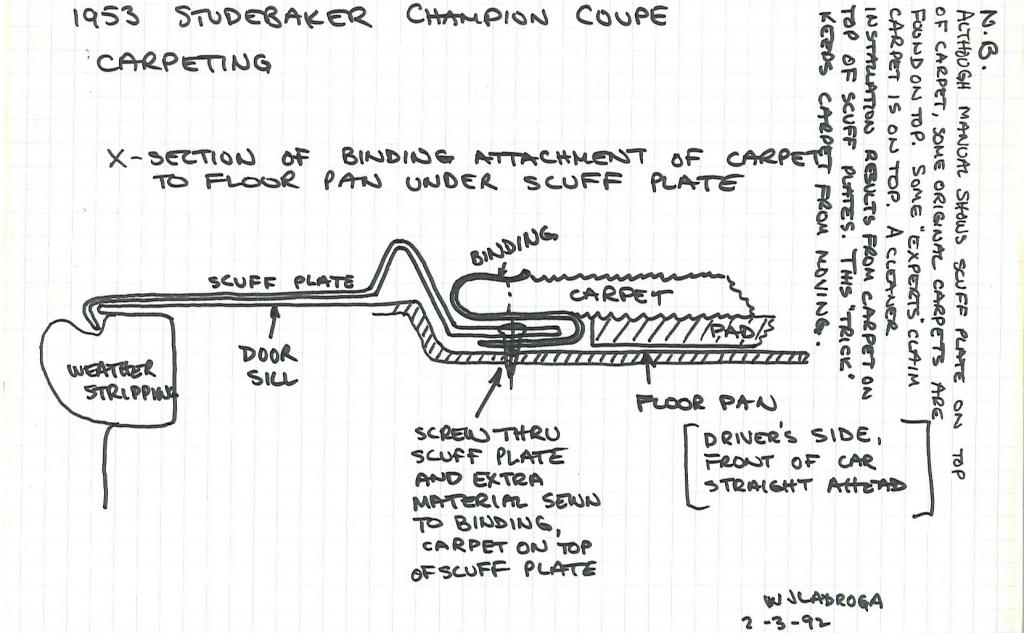 1953 STUDEBAKER CHAMPION COUPE
CARPETING
X-SECTION OF BINDING ATTACHMENT OF CARPET
TO FLOOR PAN UNDER SCUFF PLATE
BINDING
SCUFF PLATE
CARPET
PAD
DOOR
SILL
WEATHER
STRIPPING
FLOOR PAN
SCREW THRU
SCUFF PLATE
AND EXTRA
MATERIAL SEWN
TO BINDING,
CARPET ON TOP
OF SCUFF PLATE
[DRIVER'S SIDE,
FRONT OF CAR
STRAIGHT AHEAD]
N.B.
ALTHOUGH MANUAL SHOWS SCUFF PLATE ON TOP
OF CARPET, SOME ORIGINAL CARPETS ARE
FOUND ON TOP. SOME "EXPERTS" CLAIM
CARPET IS ON TOP. A CLEANER
INSTALLATION RESULTS FROM CARPET ON
TOP OF SCUFF PLATES. THIS "TRICK"
KEEPS CARPET FROM MOVING.
WJLADROGA
2-3-92